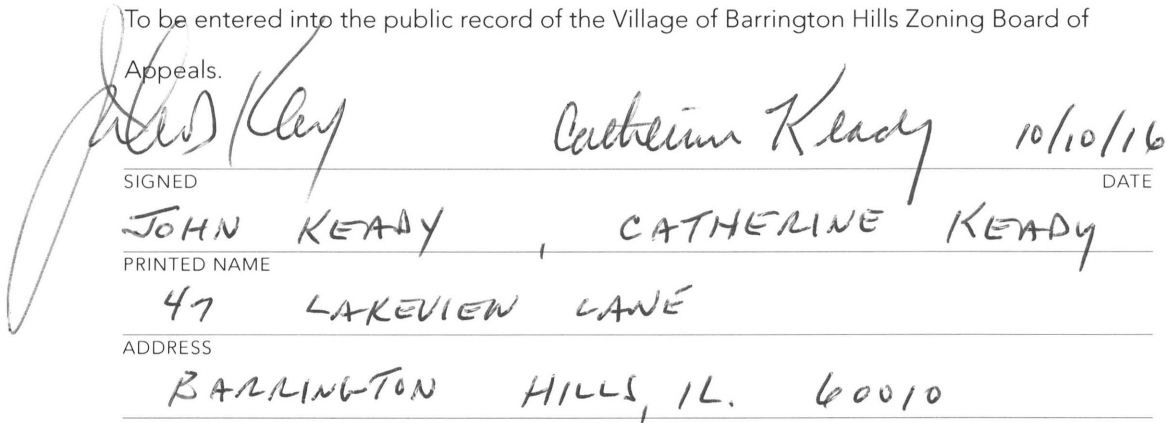 To be entered into the public record of the Village of Barrington Hills Zoning Board of
Appeals.
Catherine Keady 10/10/16
SIGNED DATE
JOHN KEADY, CATHERINE KEADY
PRINTED NAME
47 LAKEVIEW LANE
ADDRESS
BARRINGTON HILLS, IL. 60010